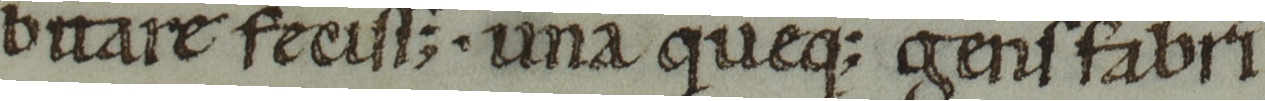 bitare fecisſ;· una queq; genſ fabri